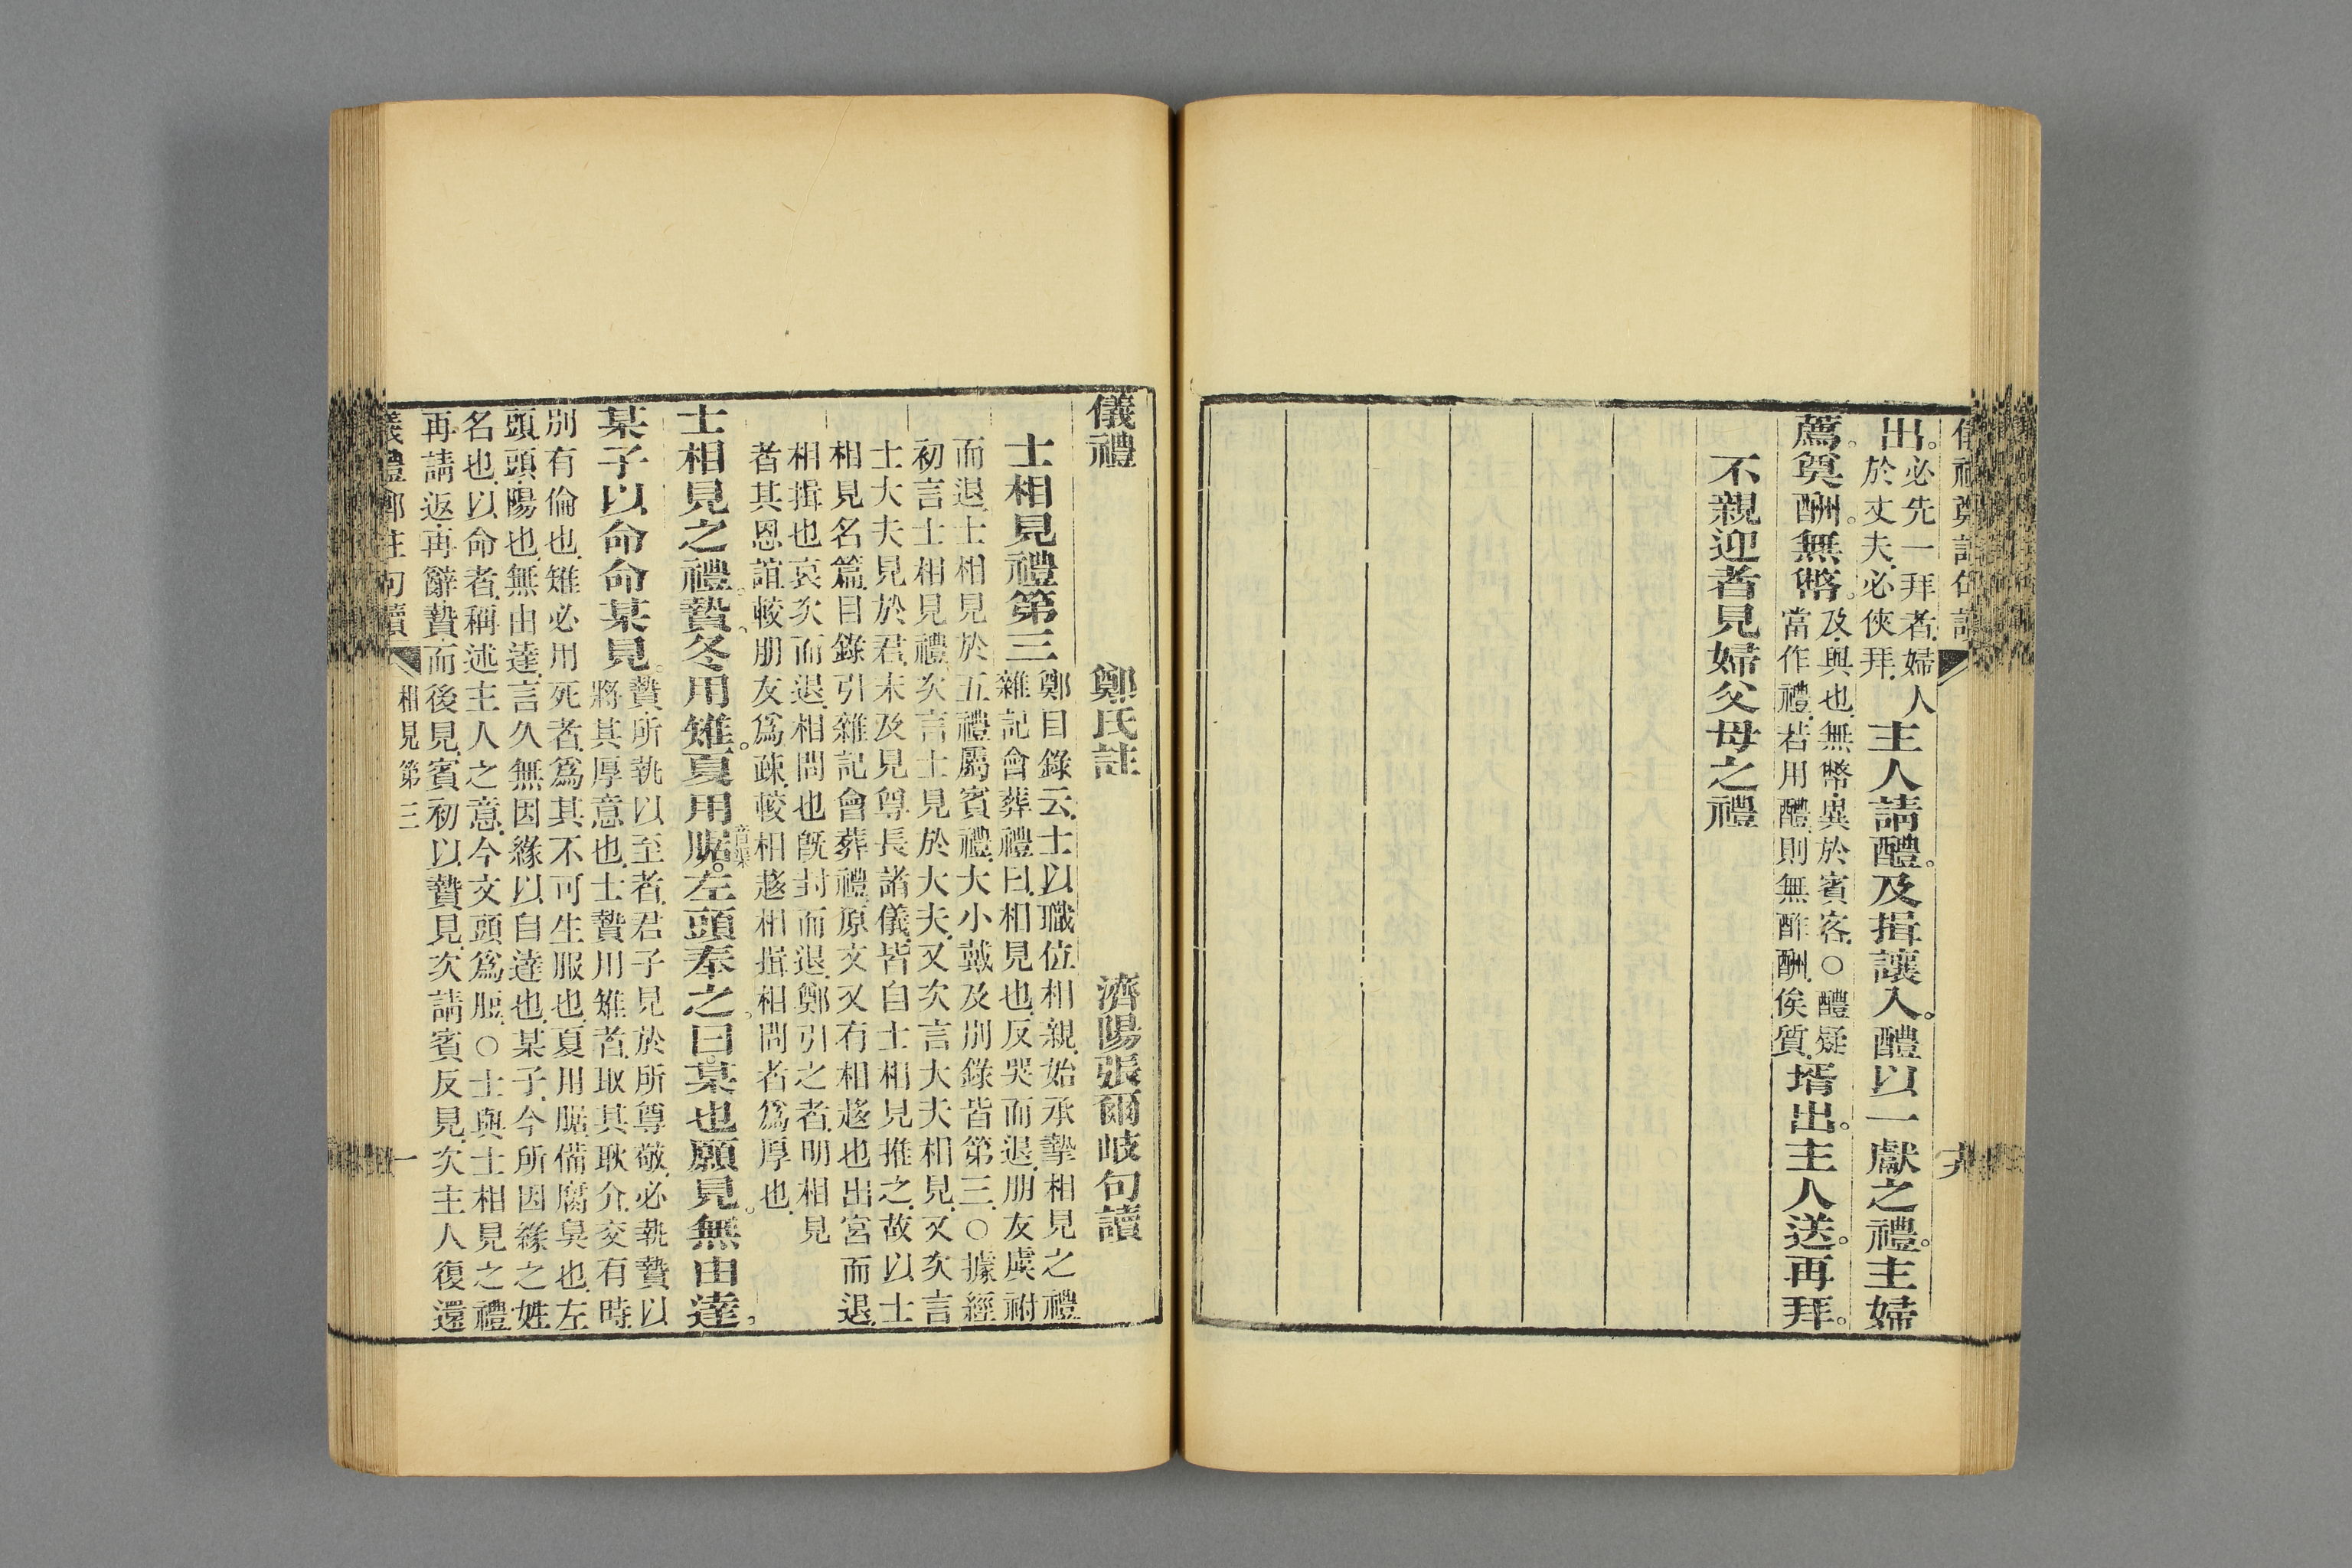 出。必先一拜者.婦人
於丈夫.必俠拜.
主人請醴。及揖讓入。醴以一獻之禮。主婦
薦。奠酬。無幣。及.與也.無幣.異於賓客.○醴疑
當作禮.若用醴.則無酢酬.俟質.
壻出。主人送。再拜。
不親迎者見婦父母之禮
儀禮 鄭氏註 濟陽張爾岐句讀
士相見禮第三
鄭目錄云.士以職位相親.始承摯相見之禮
雜記會葬禮曰.相見也.反哭而退.朋友虞祔
而退.士相見於五禮屬賓禮.大小戴及別錄皆第三.○據經
初言士相見禮.次言士見於大夫.又次言大夫相見.又次言
士大夫見於君.末及見尊長諸儀.皆自士相見推之.故以士
相見名篇.目錄引雜記會葬禮.原文又有相趨也出宮而退.
相揖也哀次而退.相問也旣封而退.鄭引之者.明相見
者其恩誼較朋友爲疎.較相趨相揖相問者爲厚也.
士相見之禮。贄。冬用雉。夏用腒。音渠左頭奉之。曰。某也願見。無由達。
某子以命命某見。贄.所執以至者.君子見於所尊敬.必執贄以
將其厚意也.士贄用雉者.取其耿介.交有時.
別有倫也.雉必用死者.爲其不可生服也.夏用腒.備腐臭也.左
頭.頭.陽也.無由達.言久無因緣以自達也.某子.今所因緣之姓
名也.以命者.稱述主人之意.今文頭爲脰.○士與士相見之禮
再請返.再辭贄.而後見.賓初以贄見.次請賓反見.次主人復還
儀禮鄭註句讀 相見第三 一